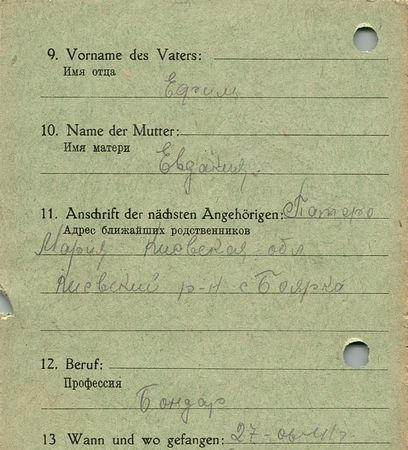 9. Vorname des Vaters:
Имя отца
Ефим
10. Name der Mutter:
Имя матери
Евдакия
11. Anschrift der nächsten Angehörigen:
Адрес ближайших родственников
Мария Киевская обл
Киевский р-н с Боярка
12. Beruf:
Профессия
Бондар
13 Wann und wo gefangen: 27-